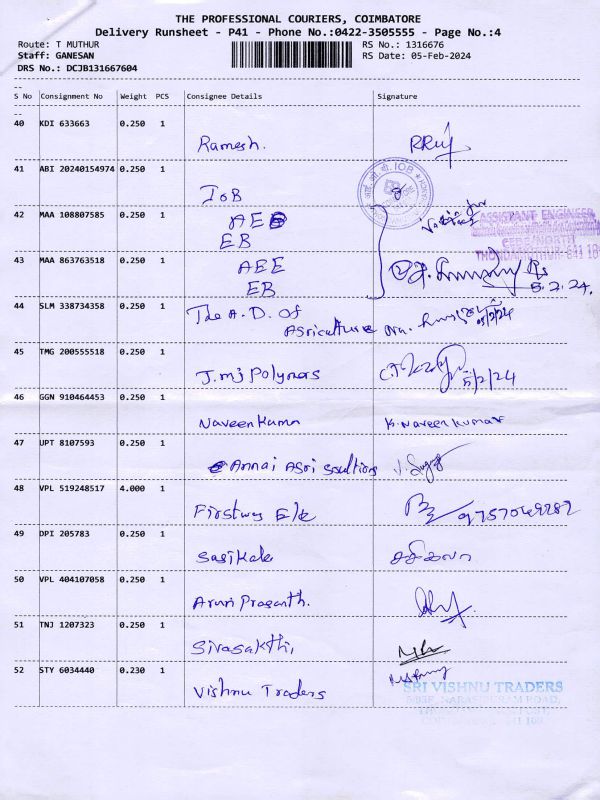 THE PROFESSIONAL COURIERS, COIMBATORE
Delivery Runsheet - P41 - Phone No.:0422-3505555 - Page No.:4
Route: T MUTHUR RS No.: 1316676
Staff: GANESAN RS Date: 05-Feb-2024
DRS No.: DCJB131667604
--
S No Consignment No Weight PCS Consignee Details Signature
--
40 KDI 633663 0.250 1
Ramesh.
41 ABI 20240154974 0.250 1
IOB
IOB
42 MAA 108807585 0.250 1
AEE
EB
ASSISTANT ENGINEER
43 MAA 863763518 0.250 1
AEE
EB
5.2.24.
44 SLM 338734358 0.250 1
The A.D. of
Agriculture
45 TMG 200555518 0.250 1
J.mj Polymers
5/2/24
46 GGN 910464453 0.250 1
Naveen Kumar K. Naveen kumar
47 UPT 8107593 0.250 1
Annai Agri Soultions
48 VPL 519248517 4.000 1
49 DPI 205783 0.250 1
Sasikala சசிகலா
50 VPL 404107058 0.250 1
Arun Prasanth.
51 TNJ 1207323 0.250 1
Sivasakthi,
52 STY 6034440 0.230 1
Vishnu Traders
SRI VISHNU TRADERS